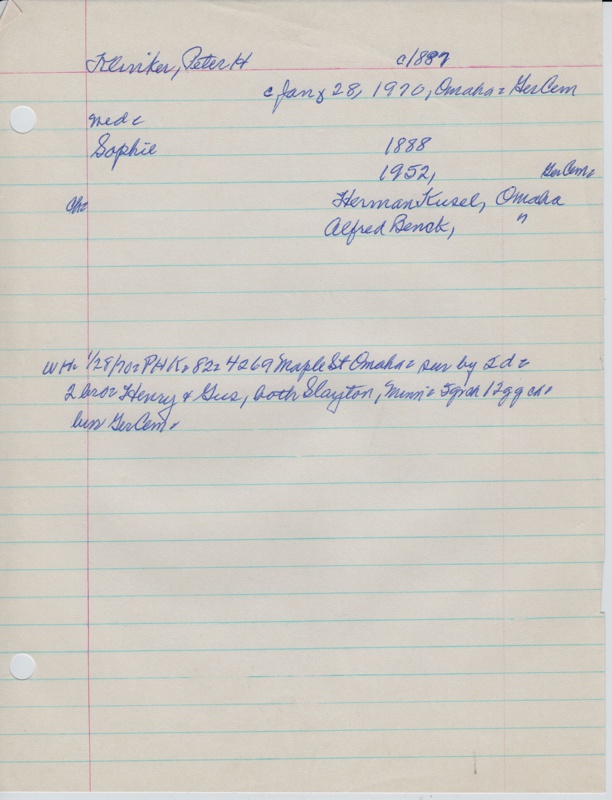 Kliniker, Peter H c/887
c Jany 28, 1970, Omaha = Ger Cem
med c
Sophie 1888
1952, Ger Cem =
Ch = Herman Kusel, Omaha
Alfred Benck, "
WH = 1/28/70 = PHK, 82 = 4269 Maple St Omaha = sur by 2d =
2 bro = Henry & Gus, both Slayton, Minn = 5 grch 12 gg ch =
bur Ger Cem =